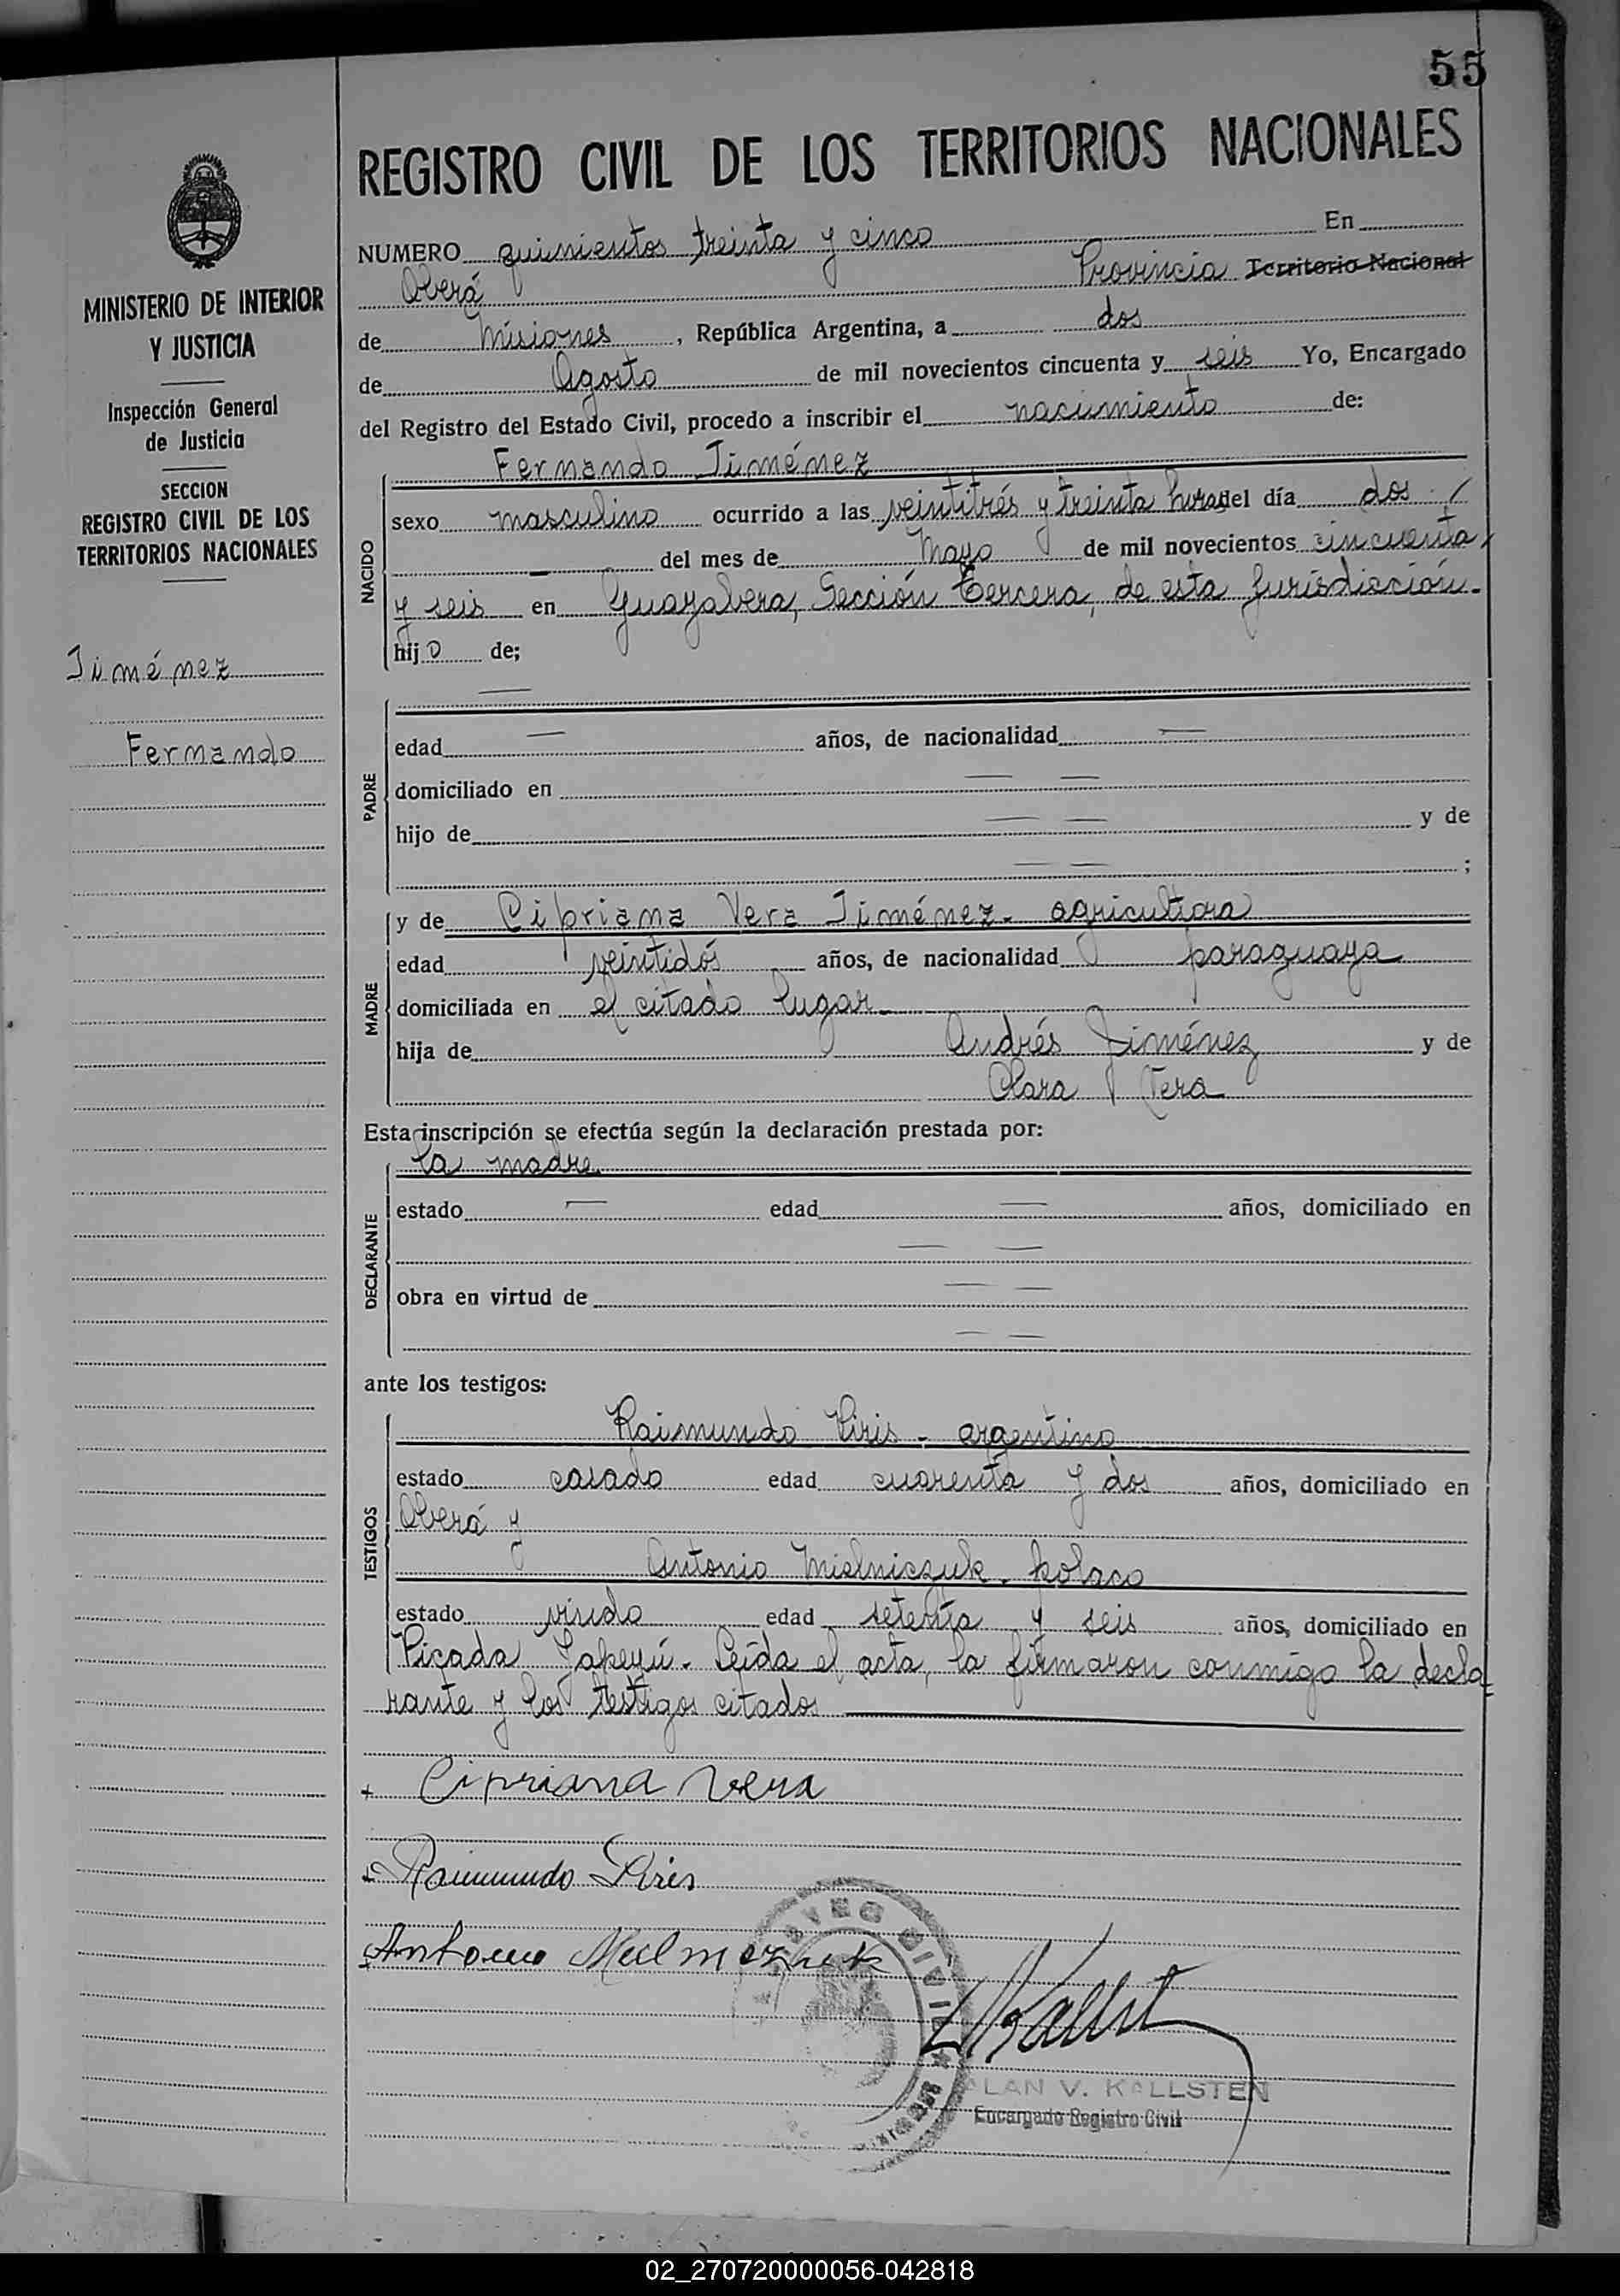 55
REGISTRO CIVIL DE LOS TERRITORIOS NACIONALES
MINISTERIO DE INTERIOR
Y JUSTICIA
Inspección General
de Justicia
SECCION
REGISTRO CIVIL DE LOS
TERRITORIOS NACIONALES
Jiménez
Fernando
NUMERO quinientos treinta y cinco En
Oberá Provincia Territorio Nacional
de Misiones, República Argentina, a dos
de Agosto de mil novecientos cincuenta y seis Yo, Encargado
del Registro del Estado Civil, procedo a inscribir el nacimiento de:
NACIDO
Fernando Jiménez
sexo masculino ocurrido a las veintitrés y treinta horas del día dos
— del mes de Mayo de mil novecientos cincuenta
y seis en Guayabera, Sección tercera, de esta jurisdicción.
hijo de;
PADRE
—
edad — años, de nacionalidad —
domiciliado en — —
hijo de — — y de
— — ;
MADRE
y de Cipriana Vera Jiménez - agricultora
edad veintidós años, de nacionalidad paraguaya
domiciliada en el citado lugar -
hija de Andrés Jiménez y de
Clara Vera
Esta inscripción se efectúa según la declaración prestada por:
DECLARANTE
la madre
estado — edad — años, domiciliado en
— —
obra en virtud de — —
— —
ante los testigos:
TESTIGOS
Raimundo Piris - argentino
estado casado edad cuarenta y dos años, domiciliado en
Oberá y
Antonio Mielniczuk - polaco
estado viudo edad setenta y seis años, domiciliado en
Picada Yapeyú - Leída el acta, la firmaron conmigo la decla
rante y los testigos citados
+ Cipriana Vera
+ Raimundo Piris
+ Antonio
REGISTRO CIVIL
MISIONES
ALAN V. KALLSTEN
Encargado Registro Civil
02_270720000056-042818